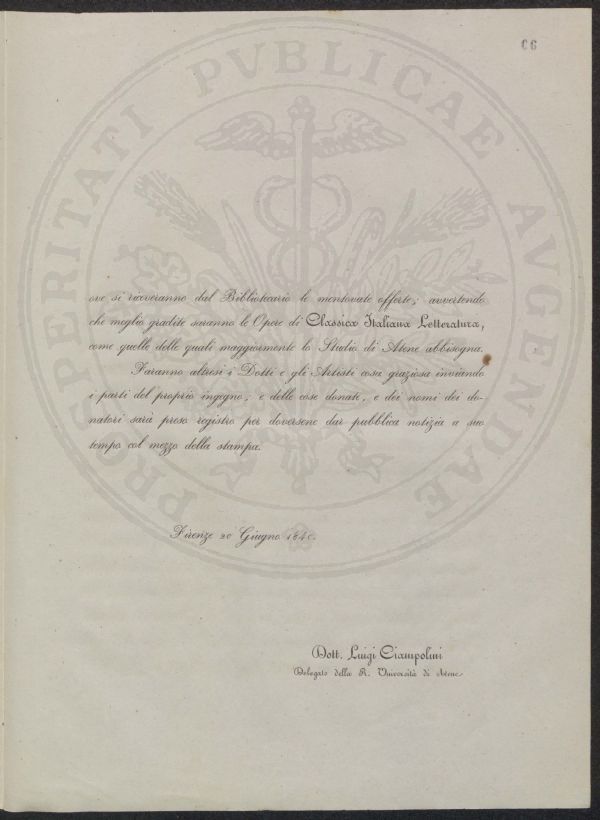 66
PROSPERITATI PVBLICAE AVGENDAE
ove si riceveranno dal Bibliotecario le mentovate offerte; avvertendo
che meglio gradite saranno le Opere di Classica Italiana Letteratura,
come quelle delle quali maggiormente lo Studio di Atene abbisogna.
Faranno altresì i Dotti e gli Artisti cosa graziosa inviando
i parti del proprio ingegno; e delle cose donate, e dei nomi dei do-
natori sarà preso registro per doversene dar pubblica notizia a suo
tempo col mezzo della stampa.
Firenze 20 Giugno 1840.
Dott. Luigi Ciampolini
Delegato della R. Università di Atene